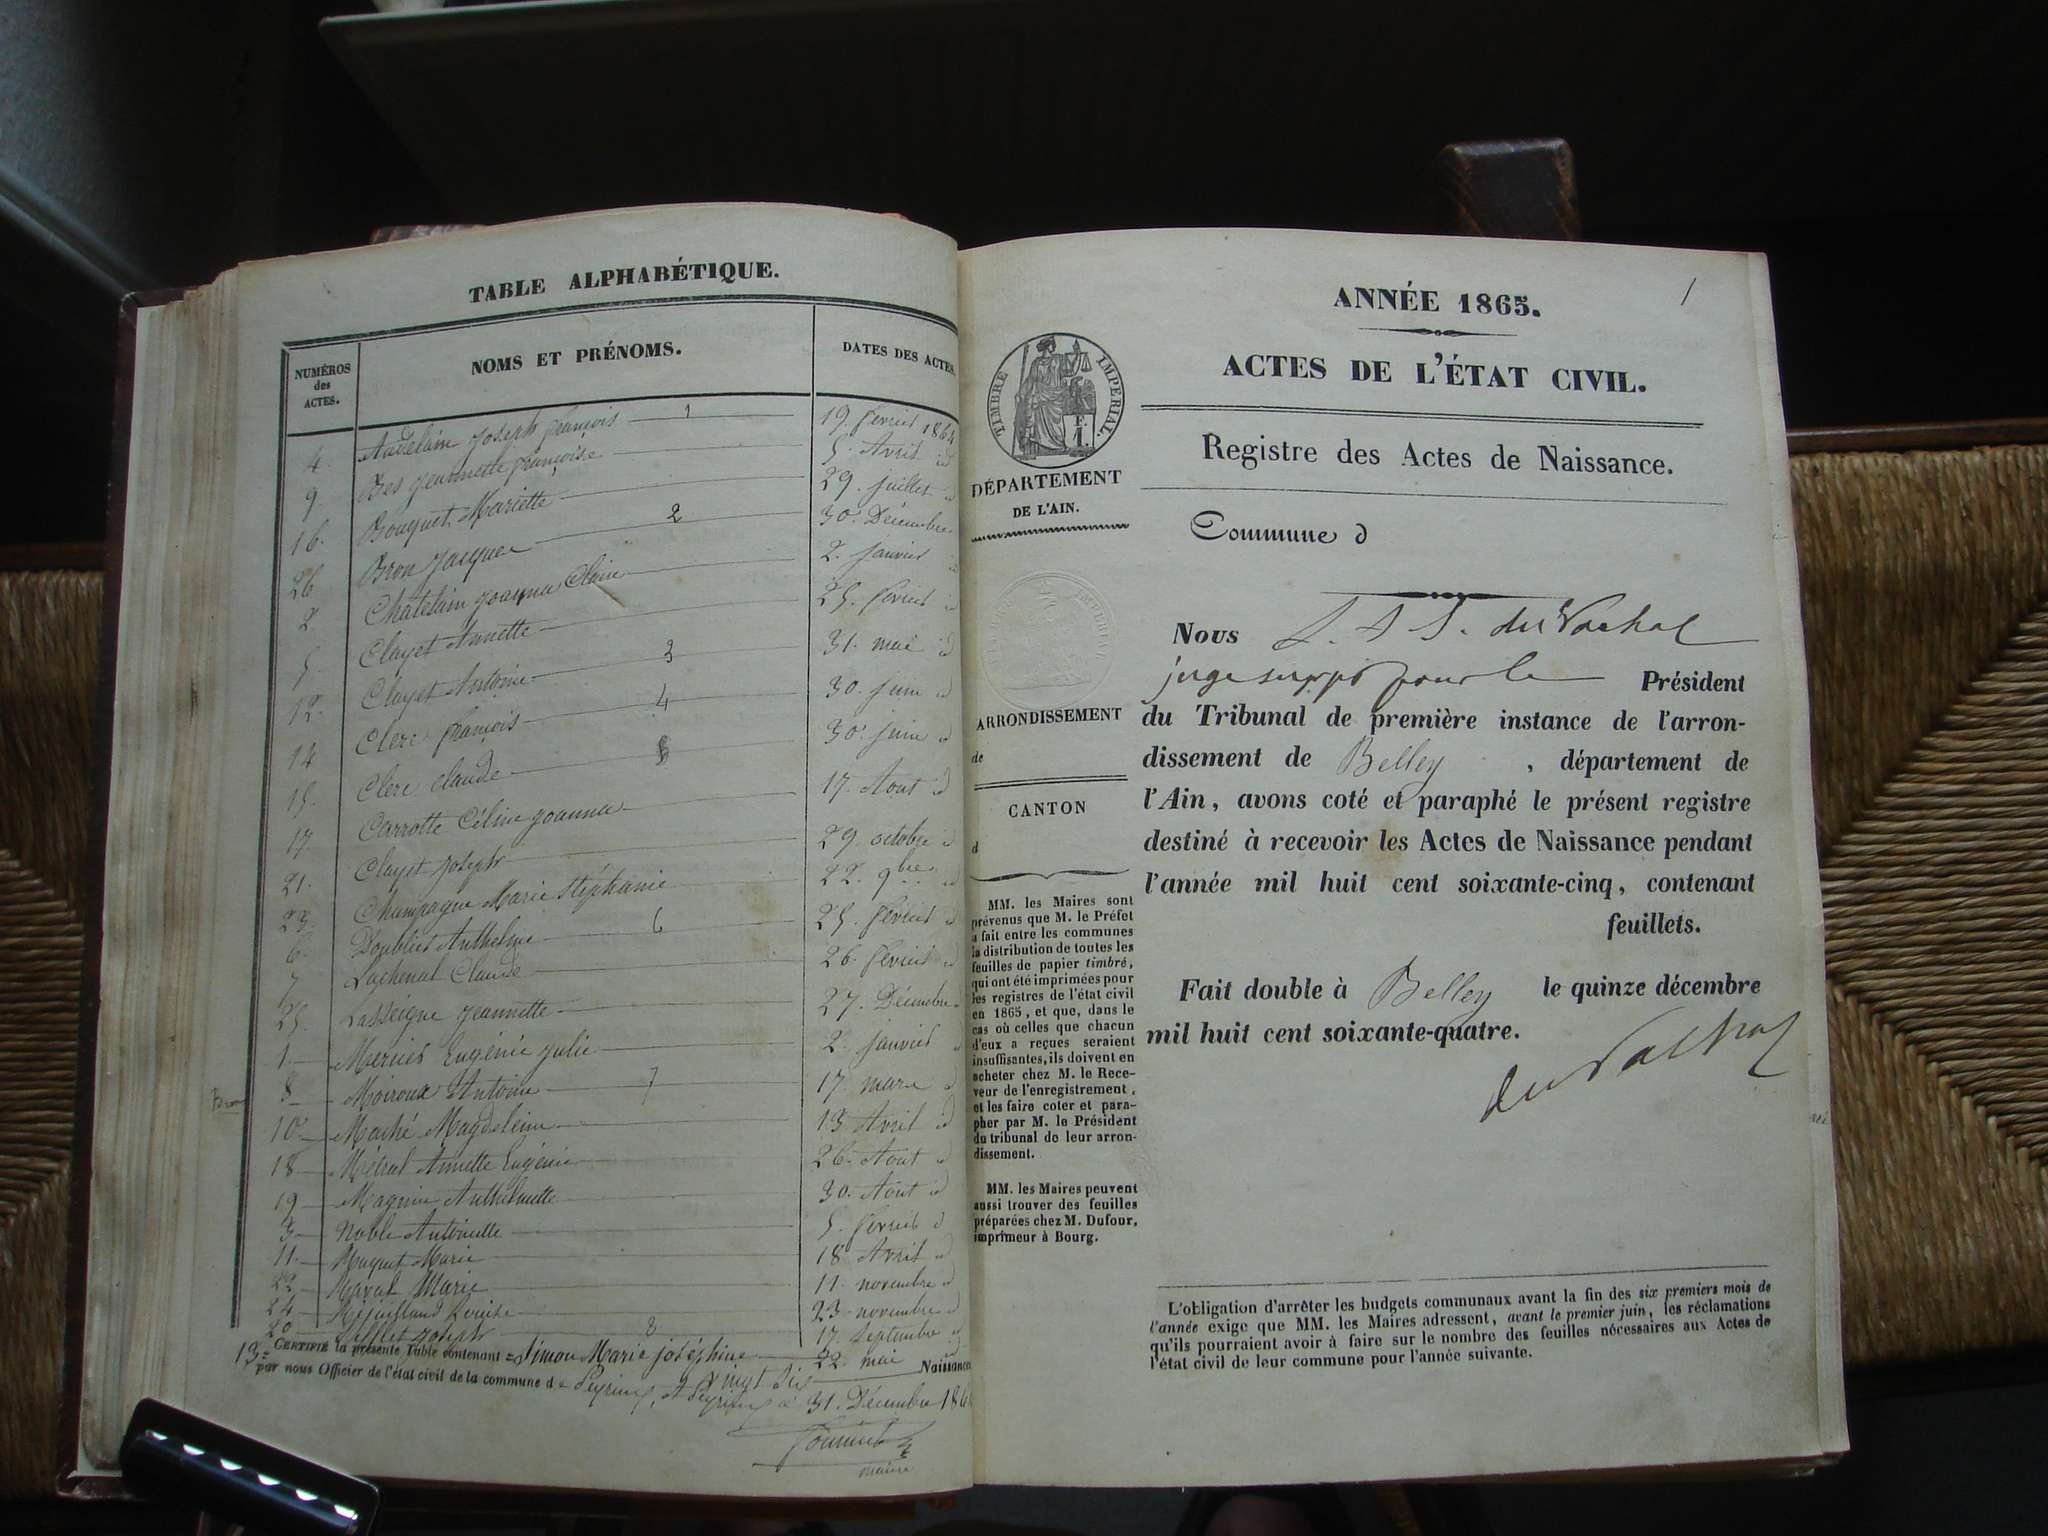 TABLE ALPHABÉTIQUE.
NUMÉROS des ACTES. NOMS ET PRÉNOMS. DATES DES ACTES.
4. Joseph françois 1 19. février 1864
9. Jeannette françoise 5. Avril id
16. Bouquet Mariette 29. juillet id
26 Bron Jacques 2 30. Décembre
2. Chatelain Joanna Claire 2. janvier
5. Clayet Annette 25. février id
12. Clayet Antoine 3 31. mai id
14 Clerc françois 4 30. juin id
15. Clerc Claude 5 30. juin id
17. Carrotte Céline Joanna 17. Aout id
21. Clayet Joseph 29. octobre id
23. Champagne Marie Stéphanie 22. 9bre
6. Doublier Anthelme 6 25. février id
7 Lachenal Claude 26. février id
25. Lasseigne Jeannette 27. Décembre
1. Mercier Eugénie Julie 2. janvier
8 Moiroux Antoine 7 17 mars id
10 Maché Magdeleine 13 Avril id
18. Métral Annette Eugénie 26. Aout id
19 Magnin Anthelmette 30. Aout id
3 Noble Antoinette 5. février id
11. Marie 18 Avril id
22 Marie 11. novembre id
24 23. novembre id
20 Joseph 8 17. Septembre id
13 Simon Marie Joséphine 22. mai
CERTIFIÉ la présente Table contenant vingt Six Naissances
par nous Officier de l'état civil de la commune d Peyrieu, A Peyrieu 31. Décembre 186
maire
1
ANNÉE 1865.
ACTES DE L'ÉTAT CIVIL.
Registre des Actes de Naissance.
Commune d
TIMBRE IMPÉRIAL.
F. 1.
DÉPARTEMENT
DE L'AIN.
ARRONDISSEMENT
de
CANTON
d
MM. les Maires sont
prévenus que M. le Préfet
a fait entre les communes
la distribution de toutes les
feuilles de papier timbré,
qui ont été imprimées pour
les registres de l'état civil
en 1865, et que, dans le
cas où celles que chacun
d'eux a reçues seraient
insuffisantes, ils doivent en
acheter chez M. le Rece-
veur de l'enregistrement,
et les faire coter et para-
pher par M. le Président
du tribunal de leur arron-
dissement.
MM. les Maires peuvent
aussi trouver des feuilles
préparées chez M. Dufour,
imprimeur à Bourg.
Nous du Vachat
juge supp pour le Président
du Tribunal de première instance de l'arron-
dissement de Belley, département de
l'Ain, avons coté et paraphé le présent registre
destiné à recevoir les Actes de Naissance pendant
l'année mil huit cent soixante-cinq, contenant
feuillets.
Fait double à Belley le quinze décembre
mil huit cent soixante-quatre.
du Vachat
L'obligation d'arrêter les budgets communaux avant la fin des six premiers mois de
l'année exige que MM. les Maires adressent, avant le premier juin, les réclamations
qu'ils pourraient avoir à faire sur le nombre des feuilles nécessaires aux Actes de
l'état civil de leur commune pour l'année suivante.